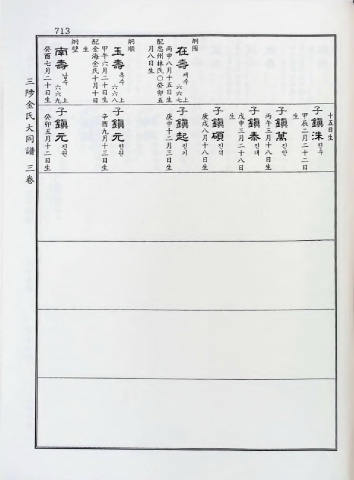 713
綱國
在壽 재수 上六六七
丙申八月十五日生
配忠州林氏癸卯五
月八日生
綱順
玉壽 옥수 上六六八
甲午六月二十日生
配金海金氏十月十日
生
綱壁
南壽 남수 上六六九
癸酉七月二十日生
十五日生
子鎭洙 진수
甲辰二月二十二日
生
子鎭萬 진만
丙午三月十八日生
子鎭泰 진태
戊申三月二十八日
生
子鎭碩 진석
庚戌八月十八日生
子鎭起 진기
庚申十二月三日生
子鎭元 진원
辛酉九月十三日生
子鎭元 진원
癸卯五月十二日生
三陟金氏大同譜 三卷